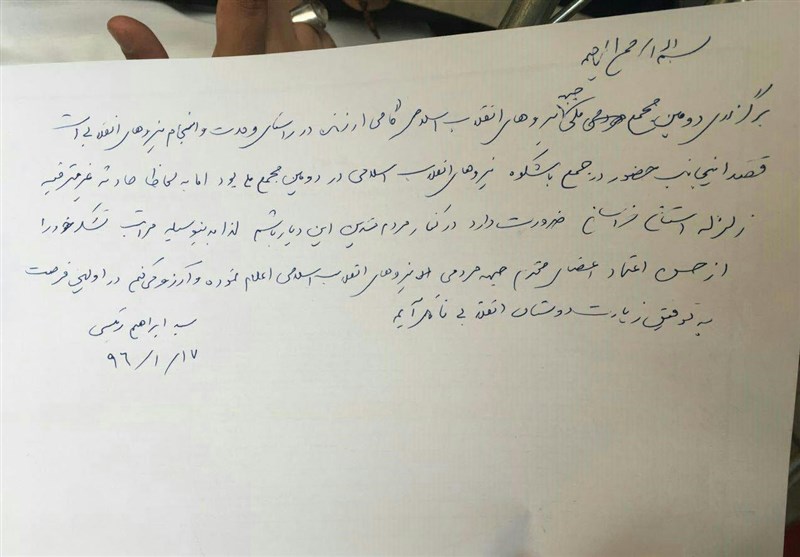 بسم الله الرحمن الرحیم
برگزاری دومین مجمع ملی جبهه نیروهای انقلاب اسلامی گامی ارزنده در راستای وحدت و انسجام نیروهای انقلابی است
قصد اینجانب حضور در جمع باشکوه نیروهای انقلاب اسلامی در دومین مجمع ملی بود اما به لحاظ حادثه غیرمترقبه
زلزله استان خراسان ضرورت دارد در کنار مردم متدین این دیار باشم لذا بدینوسیله مراتب تشکر خود را
از حسن اعتماد اعضای محترم جبهه مردمی نیروهای انقلاب اسلامی اعلام نموده و آرزو می‌کنم در اولین فرصت
به توفیق زیارت دوستان انقلابی نائل آیم
سید ابراهیم رئیسی
۹۶/۱/۱۷